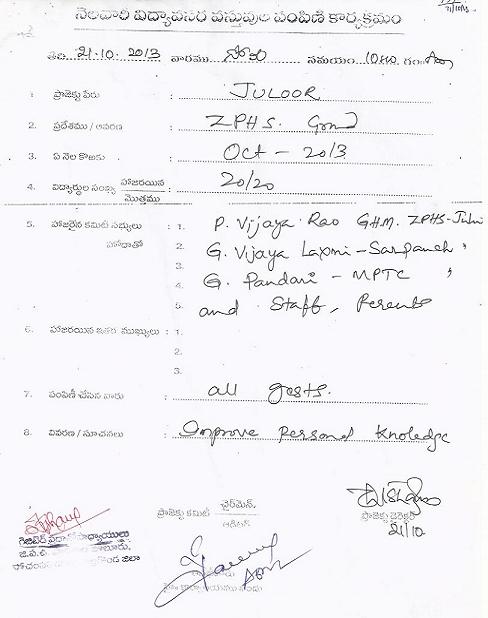 నెలవారి విద్యావసర వస్తువుల పంపిణి కార్యక్రమం
తేది 21.10.2013 వారము సోమ సమయం 10
1 ప్రాజెక్టు పేరు : JULOOR
2. ప్రదేశము / ఆవరణ : ZPHS.
3. ఏ నెల కొఱకు : Oct - 2013
4. విద్యార్థుల సంఖ్య హాజరయిన / మొత్తము : 20/20
5. హాజరైన కమిటీ సభ్యులు : 1. P. Vijaya Rao GHM. ZPHS-
హోదాతో 2. G. Vijaya Laxmi - Sarpanch "
3.
4. G. Pandari - MPTC "
5. and Staff, Perents
6. హాజరయిన ఇతర ముఖ్యులు : 1.
2.
3.
7. పంపిణీ చేసిన వారు : all gests.
8. వివరణ / సూచనలు : Improve Personal Knoledge
ప్రాజెక్టు కమిటీ ఛైర్మెన్.
ప్రాజెక్టు డైరెక్టర్
21/10
గెజిటెడ్ ప్రధానోపాధ్యాయులు